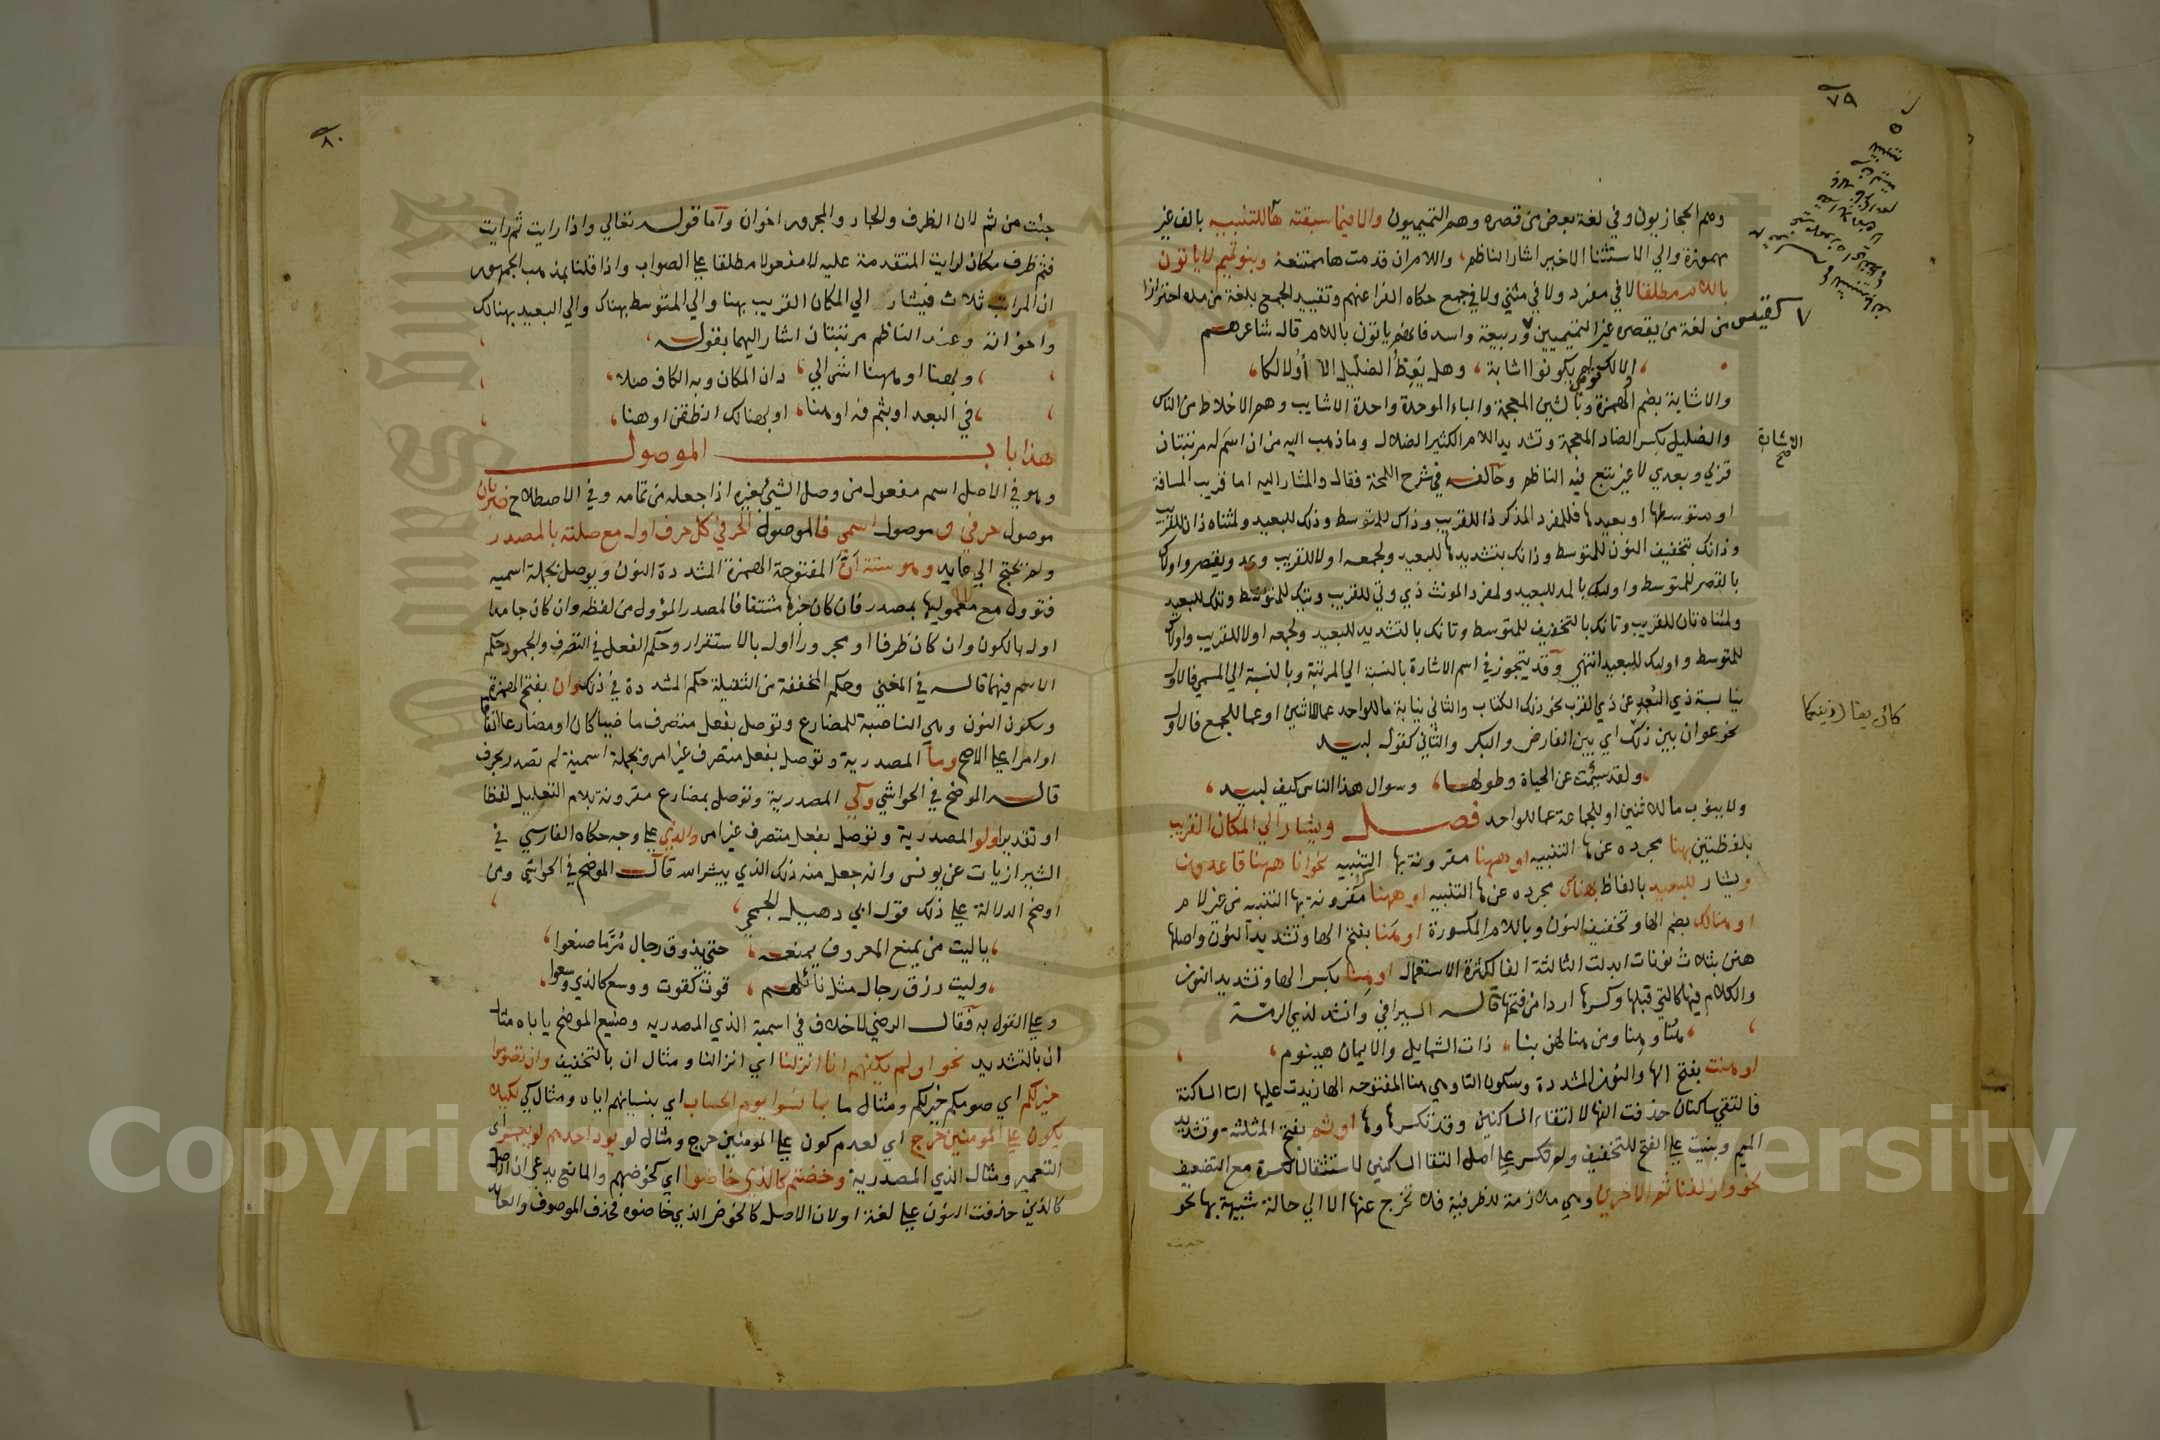 ٧٩
وهم الحجازيون وفي لغة بعض من قصره وهم التميميون والا فيما سبقته ها للتنبيه بالف غير
مهموزة والي الاستثنا الاخير اشار الناظم واللام ان قدمت ها ممتنعة وبنو تميم لا ياتون
باللام مطلقا لا في مفرد ولا في مثني ولا في جمع حكاه الفرا عنهم وتقييد الجمع بلغة من مده احترازا
من لغة من يقصره غير التميميين كقيس وربيعة واسد فانهم ياتون باللام قال شاعرهم
اولالك قومي لم يكونوا اشابة وهل يعظ الضليل الا اولالكا
والاشابة بضم الهمزة وبالشين المعجمة والباء الموحدة واحدة الاشايب وهم الاخلاط من الناس
والضليل بكسر الضاد المعجمة وتشديد اللام الكثير الضلال وما ذهب اليه من ان اسم له مرتبتان
قربي وبعدي لا غير تبع فيه الناظم وخالفه في شرح اللمحة فقال والمشار اليه اما قريب المسافة
او متوسطها او بعيدها فللمفرد المذكر ذا للقريب وذاك للمتوسط وذلك للبعيد ولمثناه ذان للقريب
وذانك بتخفيف النون للمتوسط وذانك بتشديدها للبعيد ولجمعه اولا للقريب ويمد ويقصر واولاك
بالقصر للمتوسط واوليك بالمد للبعيد ولمفرد المونث ذي وتي للقريب وتيك للمتوسط وتلك للبعيد
ولمثناه تان للقريب وتانك بالتخفيف للمتوسط وتانك بالتشديد للبعيد ولجمعه اولا للقريب واولاك
للمتوسط واوليك للبعيد انتهي وقد يتجوز في اسم الاشارة بالنسبة الي المرتبة وبالنسبة الي المسمي فالاول
نيابة ذي البعد عن ذي القرب نحو ذلك الكتاب والثاني نيابة ما للواحد عما للاثنين او عما للجمع فالاول
نحو عوان بين ذلك اي بين الفارض والبكر والثاني كقول لبيد
ولقد سئمت عن الحياة وطولها وسوال هذا الناس كيف لبيد
ولا ينوب ما للاثنين او للجماعة عما للواحد فصل ويشار الي المكان القريب
بلفظتين بهنا مجرده عن ها التنبيه او ههنا مقرونة بها التنبيه نحو انا ههنا قاعدون
ويشار للبعيد بالفاظ بهناك مجرده عن ها التنبيه او ههنا مقرونة بها التنبيه من غير لام
او هنالك بضم الها وتخفيف النون وباللام المكسورة او هنا بفتح الها وتشديد النون واصلها
هنن بثلاث نونات ابدلت الثالثة الفا لكثرة الاستعمال او هنا بكسر الها وتشديد النون
والكلام فيها كالتي قبلها وكسرها اردا من فتحها قاله السيرافي وانشد لذي الرمة
هنا وهنا ومن هنا لهن بنا ذات الشمايل والايمان هينوم
او هنت بفتح الها والنون المشددة وسكون التا وهي هنا المفتوحه الها زيدت عليها التا الساكنة
فالتقي ساكنان حذفت الفها لالتقاء الساكنين وقد تكسر هاوها او ثم بفتح المثلثة وتشديد
الميم وبنيت علي الفتح للتخفيف ولم تكسر علي اصل التقا الساكنين لاستثقال الكسرة مع التضعيف
نحو وازلفنا ثم الاخرين وهي ملازمة للظرفية فلا تخرج عنها الا الي حالة شبيهة بها نحو
٨٠
جئت من ثم لان الظرف والجار والمجرور اخوان واما قوله تعالي واذا رايت ثم رايت
فثم ظرف مكان لرايت المتقدمة عليه لا مفعولا مطلقا علي الصواب واذا قلنا بمذهب الجمهور
ان المراتب ثلاث فيشار الي المكان القريب بهنا والي المتوسط بهناك والي البعيد بهنالك
واخواته وعند الناظم مرتبتان اشار اليهما بقوله
وبهنا او ههنا اشر الي دان المكان وبه الكاف صلا
في البعد او بثم فه او هنا او بهنالك انطقن او هنا
هذا باب الموصول
وهو في الاصل اسم مفعول من وصل الشي بغيره اذا جعله من تمامه وفي الاصطلاح ضربان
موصول حرفي وموصول اسمي فالموصول الحرفي كل حرف اول مع صلته بالمصدر
ولم يحتج الي عايد وهو ستة ان المفتوحة الهمزة المشددة النون وتوصل بجملة اسميه
فتوول مع معموليها بمصدر فان كان خبرها مشتقا فالمصدر المؤول من لفظه وان كان جامدا
اول بالكون وان كان ظرفا او مجرورا اول بالاستقرار وحكم الفعل في التصرف والجمود حكم
الاسم فيهما قاله في المغني وحكم المخففة من الثقيلة حكم المشددة في ذلك وان بفتح الهمزة
وسكون النون وهي الناصبة للمضارع وتوصل بفعل متصرف ماضيا كان او مضارعا اتفاقا
او امرا علي الاصح وما المصدرية وتوصل بفعل متصرف غير امر وبجملة اسمية لم تصدر بحرف
قاله الموضح في الحواشي وكي المصدرية وتوصل بمضارع مقرونة بلام التعليل لفظا
او تقديرا ولو المصدرية وتوصل بفعل متصرف غير امر والذي علي وجه حكاه الفارسي في
الشيرازيات عن يونس وانه جعل منه ذلك الذي يبشر الله قال الموضح في الحواشي ومن
اوضح الدلالة علي ذلك قول ابي دهبل الجمحي
ياليت من يمنع المعروف يمنعه حتي يذوق رجال مر ما صنعوا
وليت رزق رجال مثل نائلهم قوت كقوت ووسع كالذي وسعوا
وعلي القول به فقال الرضي لا خلاف في اسمية الذي المصدريه وصنيع الموضح ياباه مثال
ان بالتشديد نحو اولم يكفهم انا انزلنا اي انزالنا ومثال ان بالتخفيف وان تصوموا
خير لكم اي صومكم خير لكم ومثال ما بما نسوا يوم الحساب اي بنسيانهم اياه ومثال كي لكيلا
يكون علي المومنين حرج اي لعدم كون علي المومنين حرج ومثال لو يود احدهم لو يعمر اي
التعمير ومثال الذي المصدرية وخضتم كالذي خاضوا اي كخوضهم والمانع يدعي ان الاصل
كالذين حذفت النون علي لغة او لان الاصل كالخوض الذي خاضوه فحذف الموصوف والعايد